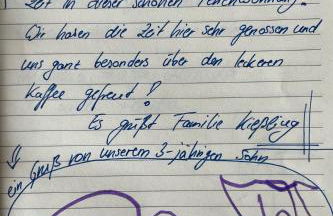 Zeit in dieser schönen Ferienwohnung.
Wir haben die Zeit hier sehr genossen und
uns ganz besonders über den leckeren
Kaffee gefreut!
Es grüßt Familie Kießling
ein Gruß von unserem 3-jährigen Sohn